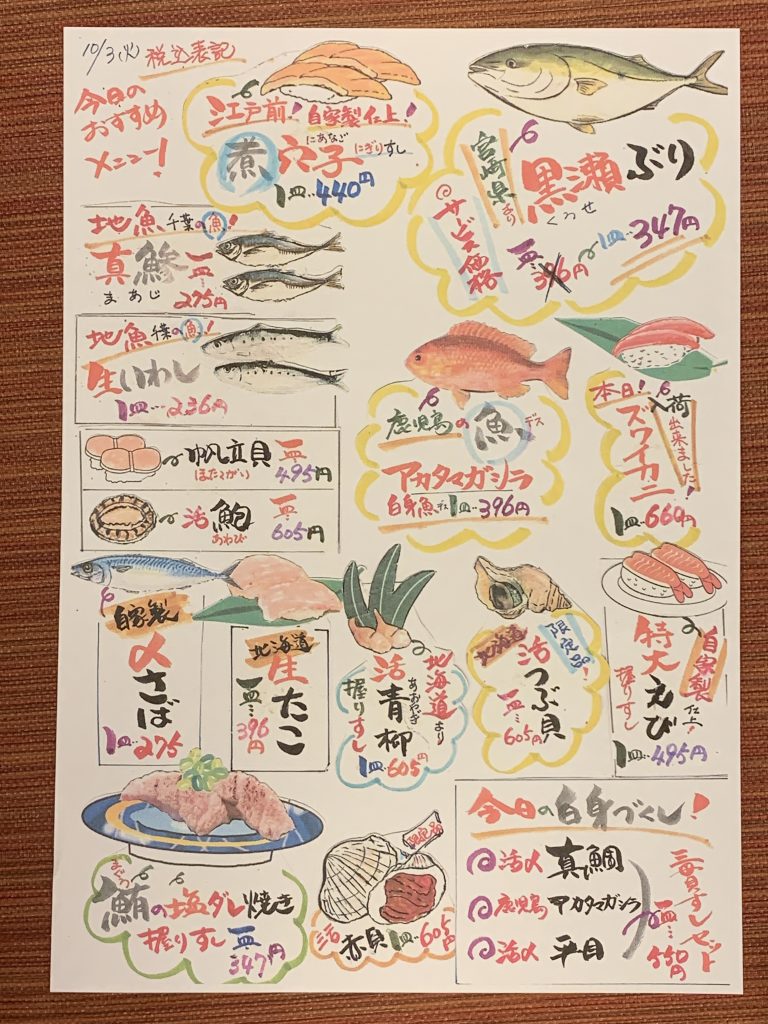 10/3(火) 税込表記
今日の
おすすめ
メニュー!
江戸前! 自家製仕上!
にあなご
煮穴子 にぎりずし
1皿…440円
宮崎県より
黒瀬ぶり
くろせ
サービス価格
一皿…396円
1皿…347円
地魚 千葉の魚!
真鯵 一皿…
まあじ 275円
地魚 千葉の魚!
生いわし
1皿…236円
帆立貝 一皿
ほたてがい 495円
活鮑 一皿…
あわび 605円
鹿児島の魚デス
アカタマガシラ
白身魚です 1皿…396円
本日! 入荷出来ました!
ズワイカニ
1皿…660円
自家製
〆さば
1皿…275
北海道
生たこ
一皿…396円
北海道より
活青柳
あおやぎ
握りずし
1皿…605円
北海道
限定品!
活つぶ貝
一皿…605円
自家製仕上!
特大えび
握りずし
1皿…495円
まぐろ
鮪の塩ダレ焼き
握りずし 一皿
347円
限定品
活赤貝 1皿…605円
今日の白身づくし!
活〆 真鯛
鹿児島 アカタマガシラ
活〆 平目
三貫ずしセット
一皿…550円